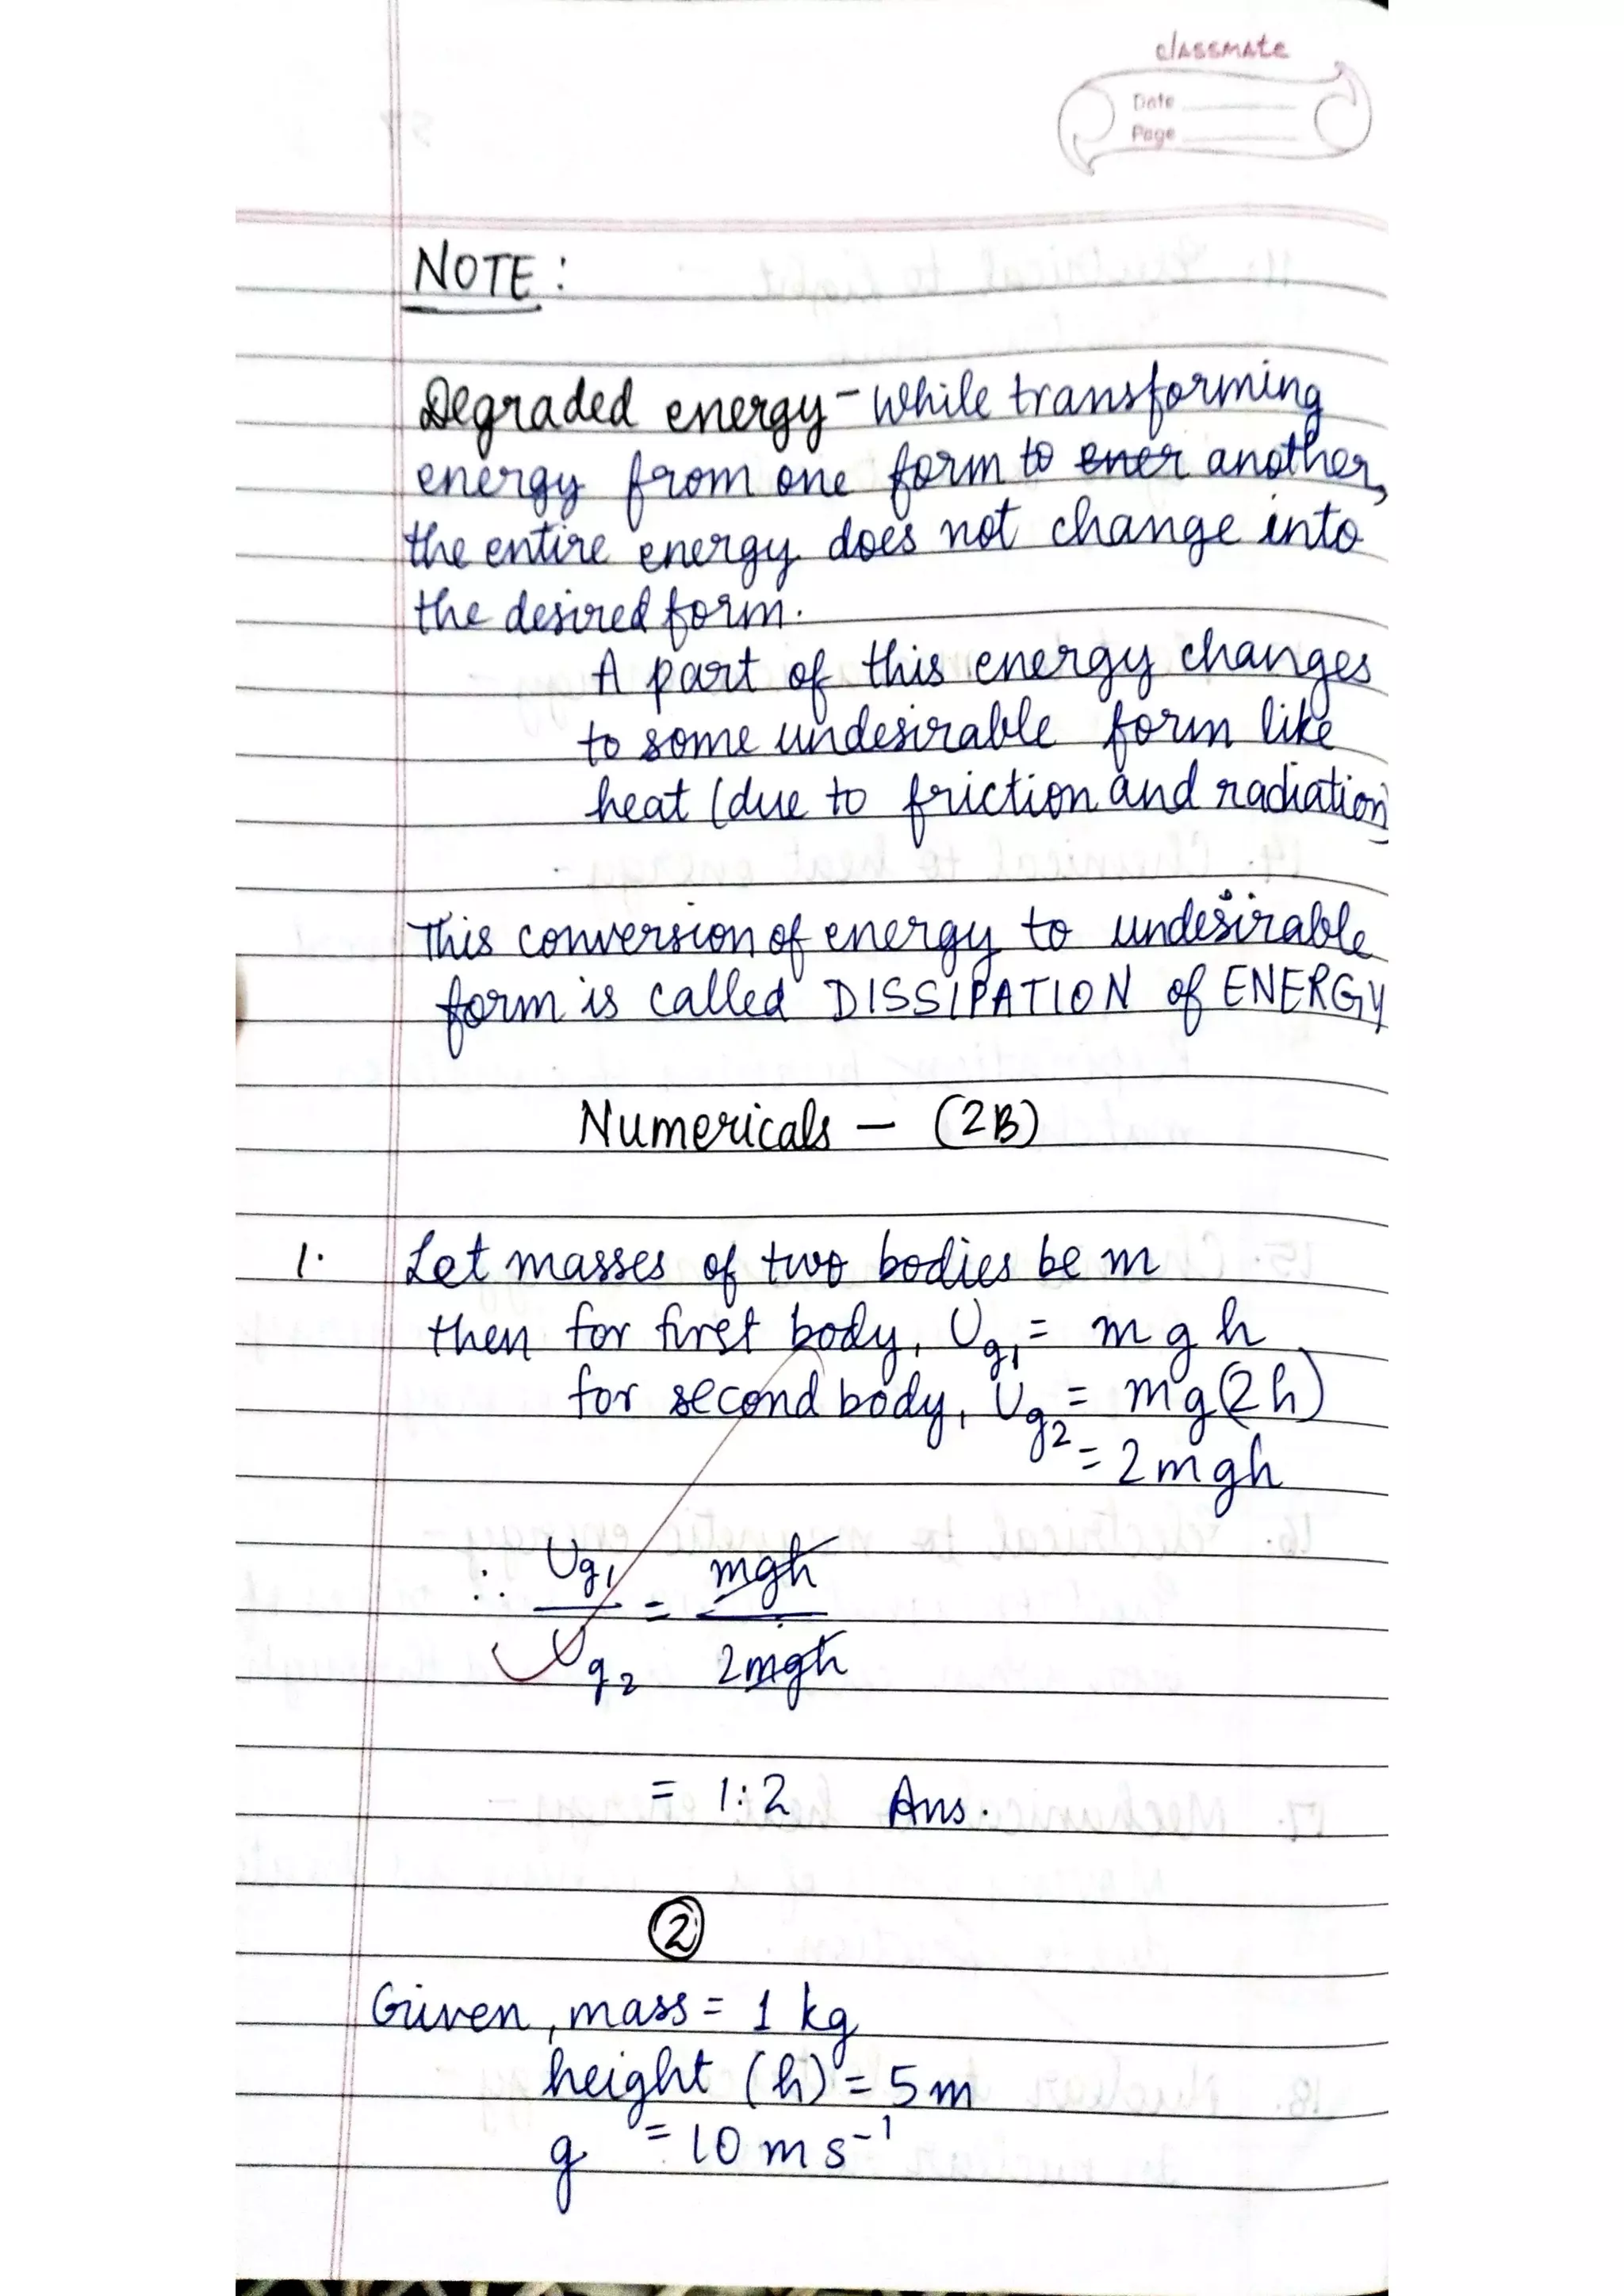 classmate
Date
Page
NOTE :
Degraded energy - While transforming
energy from one form to ener another,
the entire energy does not change into
the desired form.
A part of this energy changes
to some undesirable form like
heat (due to friction and radiation)
This conversion of energy to undesirable
form is called DISSIPATION of ENERGY
Numericals - (2B)
1. Let masses of two bodies be m
then for first body, Ug1 = m g h
for second body, Ug2 = mg(2h)
= 2mgh
∴ Ug1 / Ug2 = mgh / 2mgh
= 1:2 Ans.
2
Given, mass = 1 kg
height (h) = 5m
g = 10 m s⁻¹